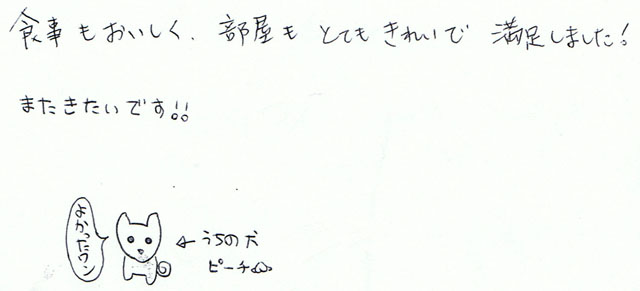 食事もおいしく、部屋も とても きれいで 満足しました!
またきたいです!!
よかったワン
←うちの犬
ピーチ